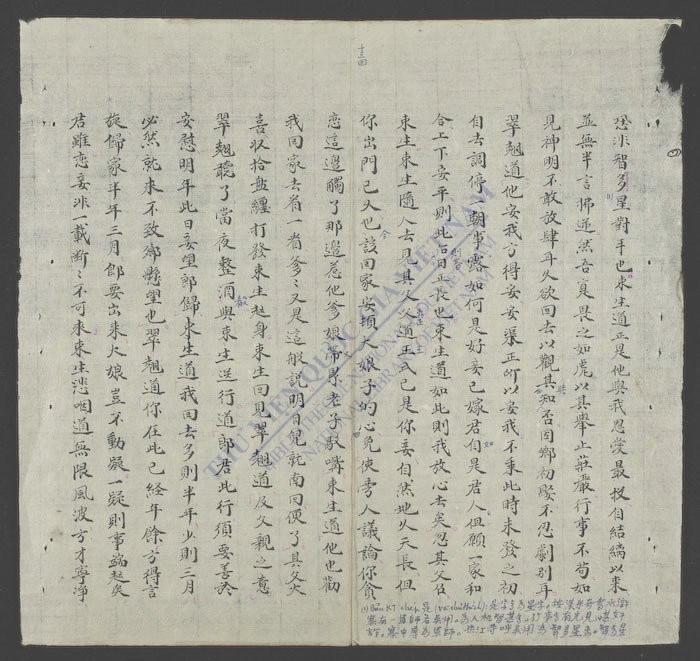 十三回
恐非智多星對手也束生道正是他與我恩愛最投自結縭以來
並無半言拂逆然吾實畏之如虎以其舉止莊嚴行事不苟如
見神明不敢放肆耳久欲回去以觀其知否因鄉初娶不忍劇別耳
翠翹道他安我方得安妾渠正所以安我不乘此時未發之初
自去調停一朝事露如何是好妾已嫁君自是君人但願一家和
合上下安平則此日正長也束生道如此則我放心去矣忽其父
束生束生隨人去見其父父道王式已是你妾自然地久天長但
你出門已久也該回家安頓大娘子的心免使旁人議論你貪
戀這邊觸了那邊惹他爹娘帶累老子馭嘴束生道他也勸
我回家去看一看爹〻又是這般說明日兒就南回便了其父大
喜收拾盤纏打發束生起身束生回見翠翹道及父親之意
翠翹聽了當夜整酒與束生送行道郎君此行須要善於
安慰明年此日妾望郎歸束生道我回去多則半年少則三月
必然就來不致鄉懸望也翠翹道你在此已經年餘方得言
旋歸家半年三月即要出來大娘豈不動疑一疑則事端起矣
君雖戀妾非一載斷〻不可來束生悲咽道無限風波方才寧淨
THƯ VIỆN QUỐC GIA VIỆT NAM
NATIONAL LIBRARY OF VIETNAM